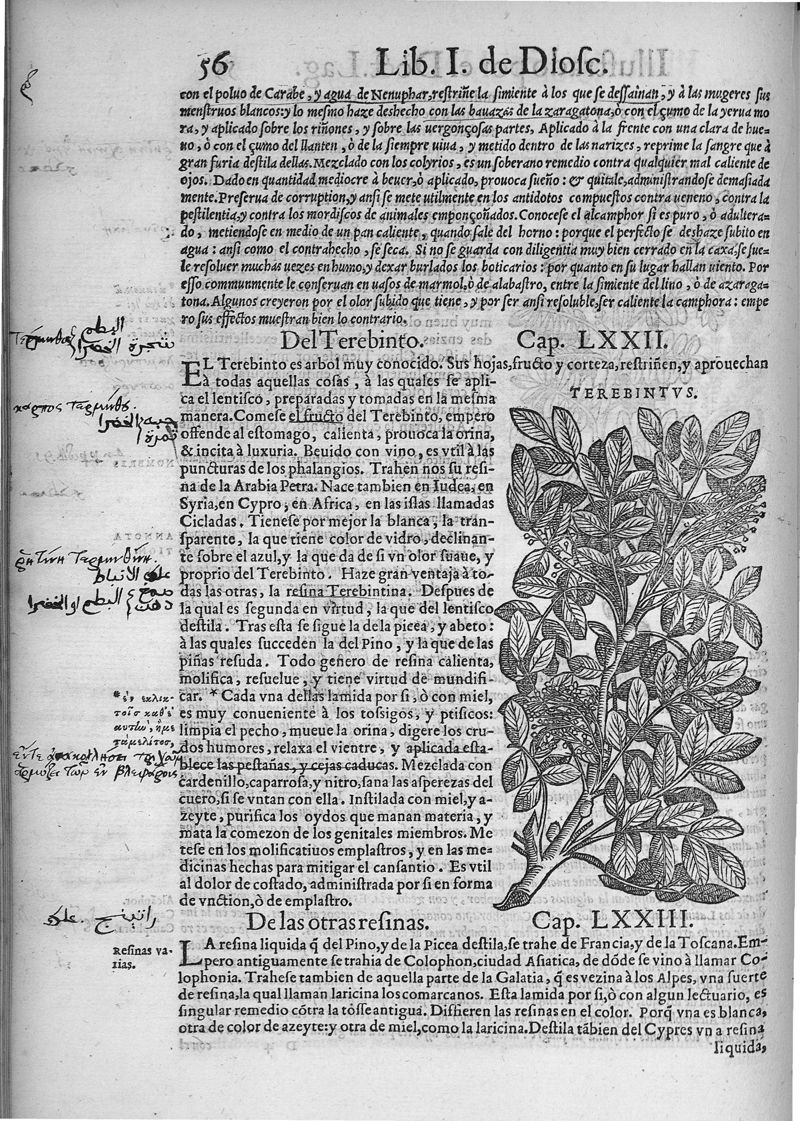 56 Lib. I. de Diosc.
con el poluo de Carabe, y agua de Nenuphar, restriñe la simiente à los que se dessainan, y à las mugeres sus
menstruos blancos: y lo mesmo haze deshecho con las bauazas de la zaragatona, ò con el çumo de la yerua mo
ra, y aplicado sobre los riñones, y sobre las uergonçosas partes, Aplicado à la frente con una clara de hue-
uo, ò con el çumo del llanten, ò de la siempre uiua, y metido dentro de las narizes, reprime la sangre que à
gran furia destila dellas. Mezclado con los colyrios, es un soberano remedio contra qualquier mal caliente de
ojos. Dado en quantidad mediocre à beuer, ò aplicado, prouoca sueño: & quitale, administrandose demasiada
mente. Preserua de corruption, y ansi se mete utilmente en los antidotos compuestos contra ueneno, contra la
pestilentia, y contra los mordiscos de animales emponçoñados. Conocese el alcamphor si es puro, ò adultera-
do, metiendose en medio de un pan caliente, quando sale del horno: porque el perfecto se deshaze subito en
agua: ansi como el contrahecho, se seca. Si no se guarda con diligentia muy bien cerrado en la caxa, se sue-
le resoluer muchas uezes en humo, y dexar burlados los boticarios: por quanto en su lugar hallan uiento. Por
esso communmente le conseruan en uasos de marmol, ò de alabastro, entre la simiente del lino, ò de azaraga-
tona. Algunos creyeron por el olor subido que tiene, y por ser ansi resoluble, ser caliente la camphora: empe
ro sus effectos muestran bien lo contrario.
Del Terebinto. Cap. LXXII.
EL Terebinto es arbol muy conocido. Sus hojas, fructo y corteza, restriñen, y aprouechan
à todas aquellas cosas, à las quales se apli-
ca el lentisco, preparadas y tomadas en la mesma
manera. Comese el fructo del Terebinto, empero
offende al estomago, calienta, prouoca la orina,
& incita à luxuria. Beuido con vino, es vtil à las
puncturas de los phalangios. Trahen nos su resi-
na de la Arabia Petra. Nace tambien en Iudea, en
Syria, en Cypro, en Africa, en las islas llamadas
Cicladas. Tienese por mejor la blanca, la tran-
sparente, la que tiene color de vidro, declinan-
te sobre el azul, y la que da de si vn olor suaue, y
proprio del Terebinto. Haze gran ventaja à to-
das las otras, la resina Terebintina. Despues de
la qual es segunda en virtud, la que del lentisco
destila. Tras esta se sigue la dela picea, y abeto:
à las quales succeden la del Pino, y la que de las
piñas resuda. Todo genero de resina calienta,
molifica, resuelue, y tiene virtud de mundifi-
car. * Cada vna dellas lamida por si, ò con miel,
es muy conueniente à los tossigos, y ptisicos:
limpia el pecho, mueue la orina, digere los cru-
dos humores, relaxa el vientre, y aplicada esta-
blece las pestañas, y cejas caducas. Mezclada con
cardenillo, caparrosa, y nitro, sana las asperezas del
cuero, si se vntan con ella. Instilada con miel, y a-
zeyte, purifica los oydos que manan materia, y
mata la comezon de los genitales miembros. Me
tese en los molificatiuos emplastros, y en las me-
dicinas hechas para mitigar el cansantio. Es vtil
al dolor de costado, administrada por si en forma
de vnction, ò de emplastro.
TEREBINTVS.
De las otras resinas. Cap. LXXIII.
Resinas va-
rias.
LA resina liquida q̃ del Pino, y de la Picea destila, se trahe de Francia, y de la Toscana. Em-
pero antiguamente se trahia de Colophon, ciudad Asiatica, de dóde se vino à llamar Co-
lophonia. Trahese tambien de aquella parte de la Galatia, q̃ es vezina à los Alpes, vna suerte
de resina, la qual llaman laricina los comarcanos. Esta lamida por si, ò con algun lectuario, es
singular remedio cótra la tósse antigua. Diffieren las resinas en el color. Porq̃ vna es blanca,
otra de color de azeyte: y otra de miel, como la laricina. Destila tãbien del Cypres vna resina
liquida,